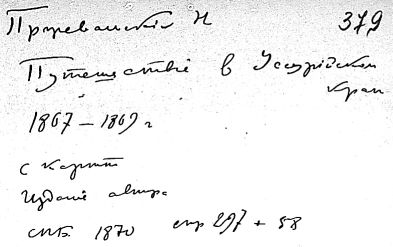 Пржевальскій Н 379
Путешествіе в Уссурійском
крае
1867 – 1869 г
с картой
Изданіе автора
СПБ. 1870 стр 297 + 58